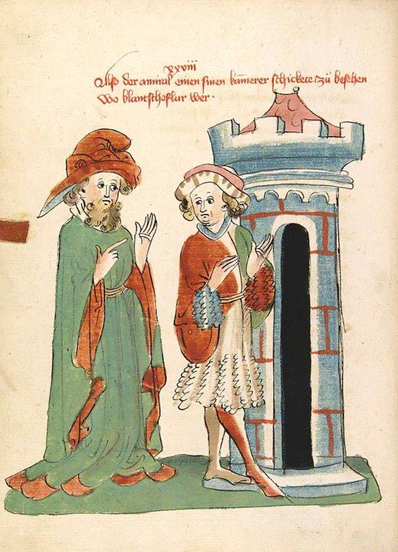 xxviii
Also der amiral einen sinen kamerer schickete zü besehen
wo blantscheflur wer ·